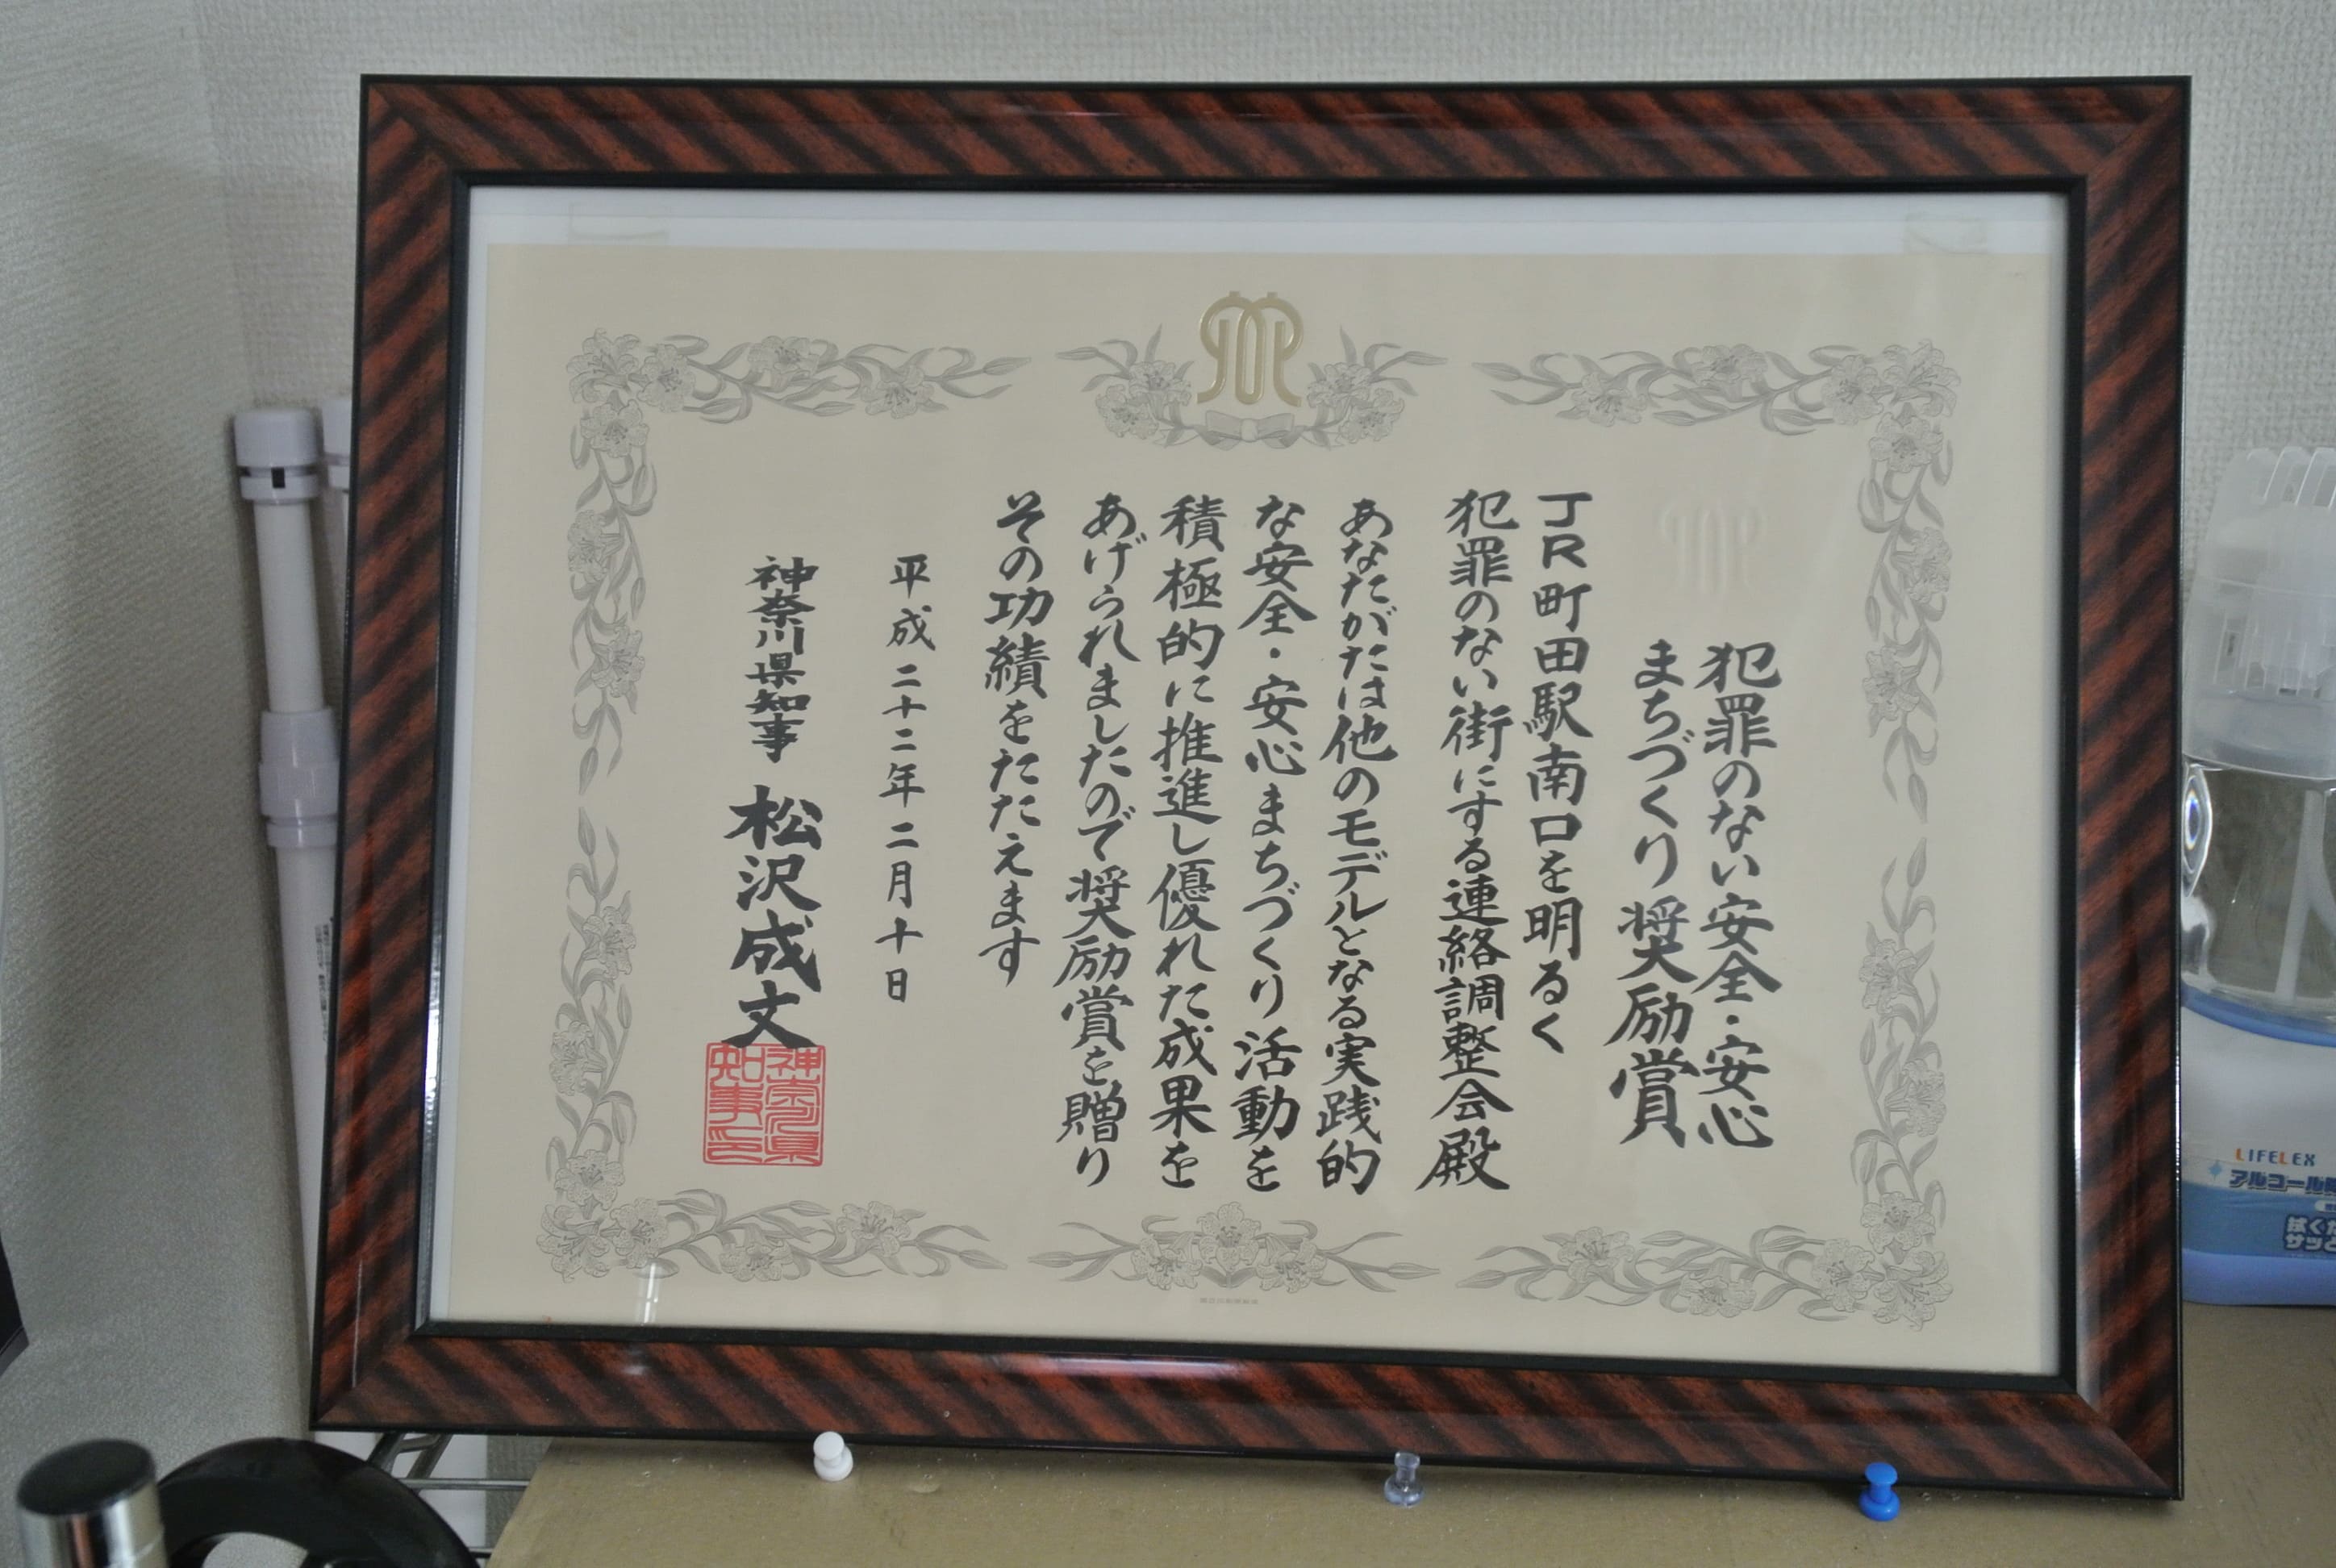 犯罪のない安全・安心
まちづくり奨励賞
JR町田駅南口を明るく
犯罪のない街にする連絡調整会殿
あなたがたは他のモデルとなる実践的
な安全・安心まちづくり活動を
積極的に推進し優れた成果を
あげられましたので奨励賞を贈り
その功績をたたえます
平成二十二年二月十日
神奈川県知事 松沢成文
神奈川県
知事之印
LIFELEX
アルコール除
拭くだ
サッと